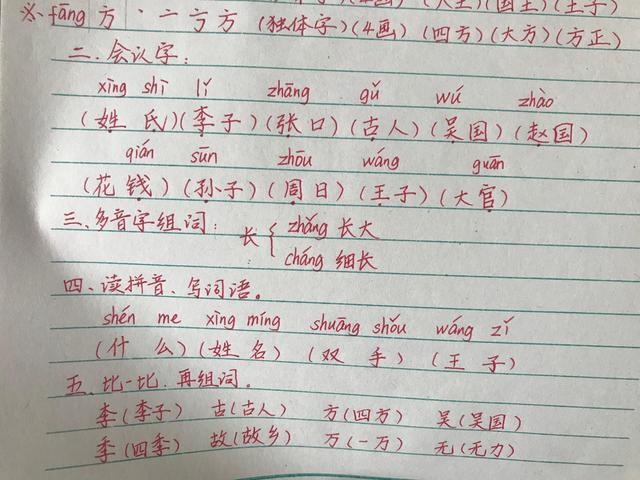 (4画)(大王)(国王)(王子)
※、fāng 方 · 亠亐方 (独体字)(4画)(四方)(大方)(方正)
二.会认字:
xìng shì lǐ zhāng gǔ wú zhào
(姓氏)(李子)(张口)(古人)(吴国)(赵国)
qián sūn zhōu wáng guān
(花钱)(孙子)(周日)(王子)(大官)
三、多音字组词:
长 { zhǎng 长大
cháng 细长
四、读拼音、写词语。
shén me xìng míng shuāng shǒu wáng zǐ
(什么)(姓名)(双手)(王子)
五、比一比、再组词。
李(李子) 古(古人) 方(四方) 吴(吴国)
季(四季) 故(故乡) 万(一万) 无(无力)